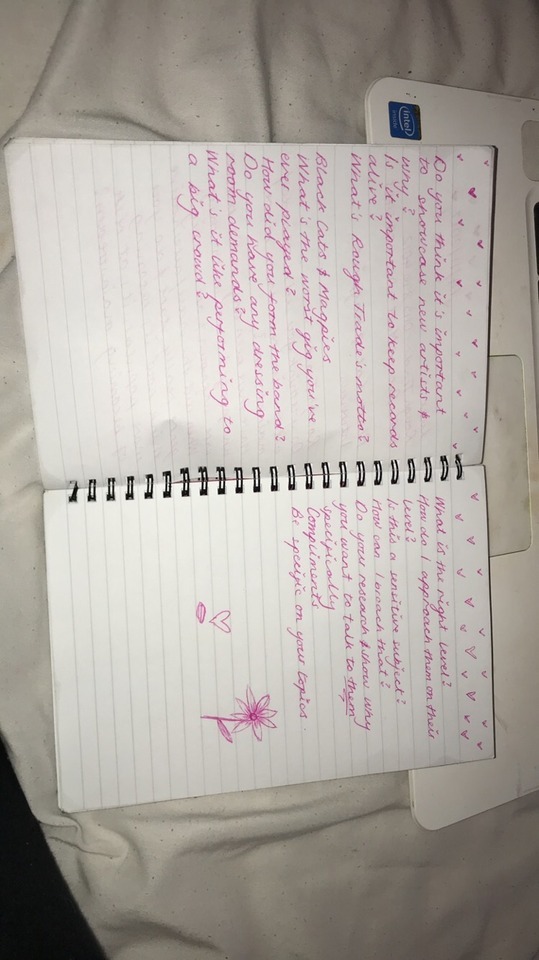 Do you think it's important
to showcase new artists &
why?
Is it important to keep records
alive?
What's Rough Trade's motto?
Black Cats & Magpies
What's the worst gig you've
ever played?
How did you form the band?
Do you have any dressing
room demands?
What's it like performing to
a big crowd?
What is the right level?
How do I approach them on their
level?
Is this a sensitive subject?
How can I breach that?
Do your research & show why
you want to talk to them
specifically
Compliments
Be specific on your topics.
intel
inside